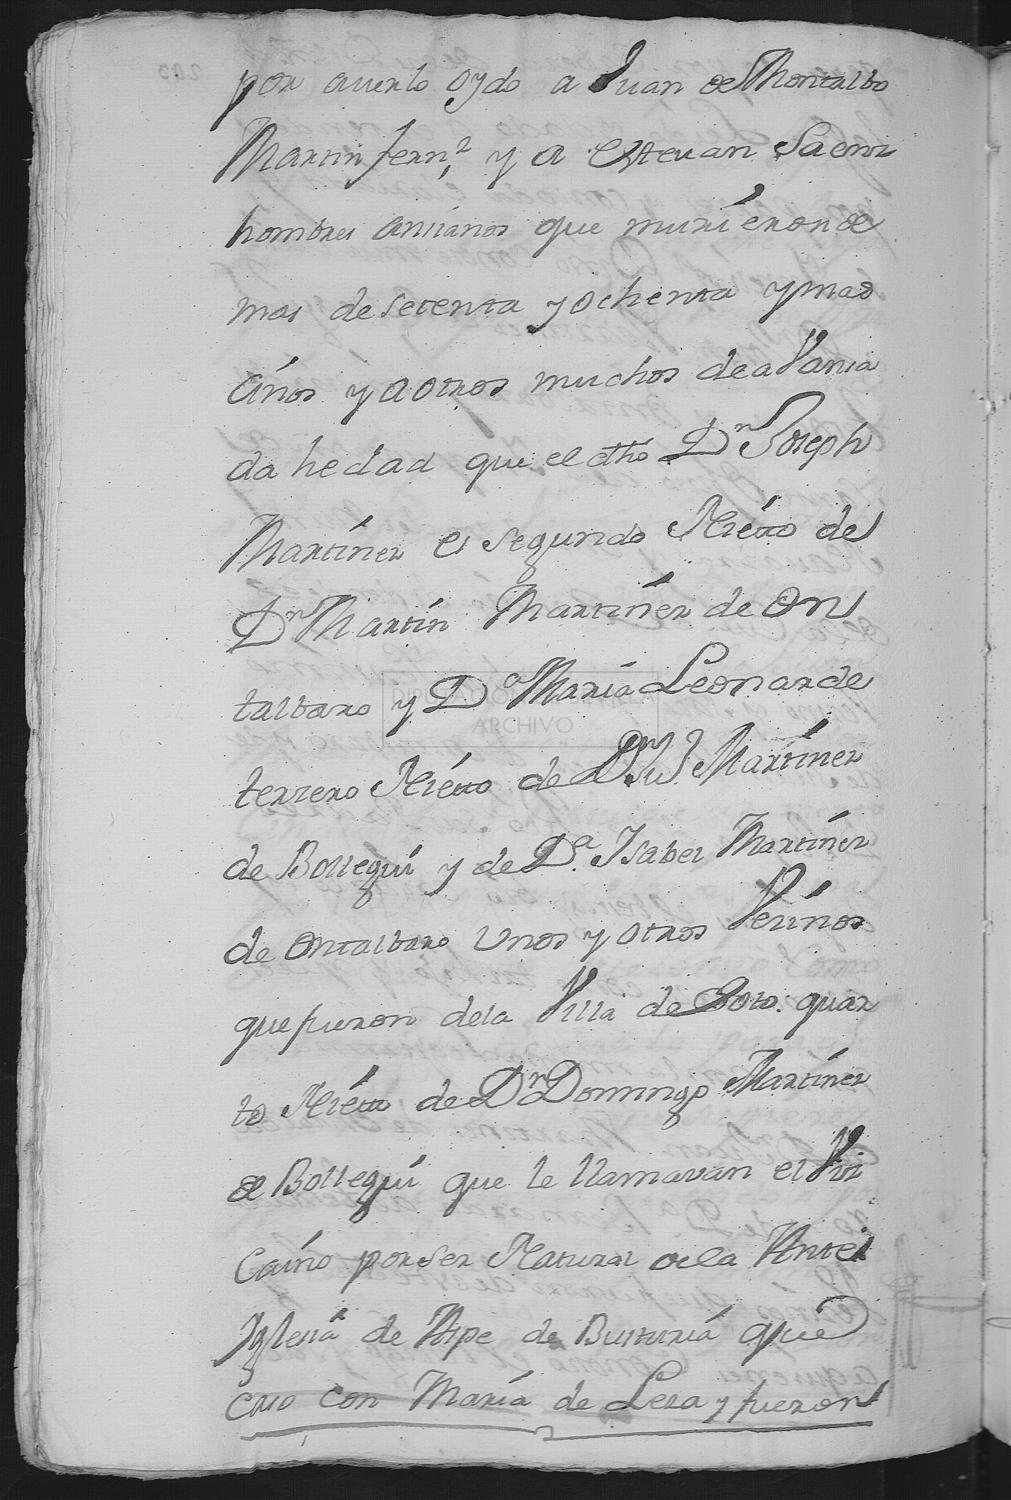 por averlo oydo a Juan de Montalbo
Martin Fern.z y a Estevan Saenz
hombres ancianos que murieron de
mas de setenta y ochenta y mas
años y a otros muchos de abanza
da hedad que el dho Dn Joseph
Martinez es segundo Nieto de
Dn Martin Martinez de On
talbaro y Da Maria Leonar de
terzero Nieto de Dn Martinez
de Bollegui y de Da. Isabel Martinez
de Ontalbaro Unos y otros Vezinos
que fueron de la Villa de Soto: quar
to Nieto de Dn Domingo Martinez
de Bollegui que le llamavan el Viz
caino por ser Natural de la Antei
Iglesia de Axpe de Busturia que
caso con Maria de Leza y fueron
DIPUTACION
ARCHIVO